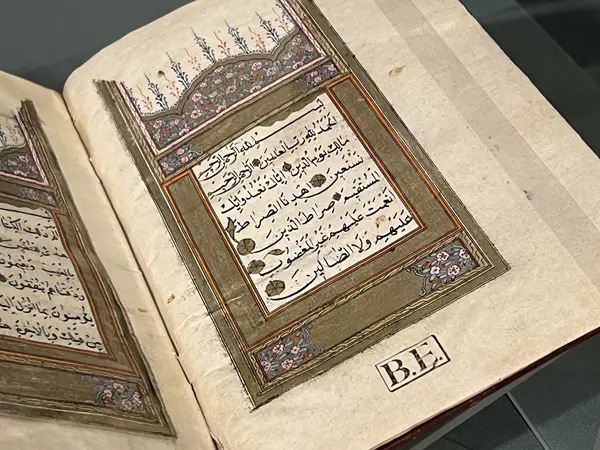 بسم الله الرحمن الرحيم
الحمد لله رب العالمين الرحمن الرحيم
مالك يوم الدين اياك نعبد واياك
نستعين اهدنا الصراط
المستقيم صراط الذين
انعمت عليهم غير المغضوب
عليهم ولا الضالين
B.E.
ينفقون
يؤمنون بما انزل
قبلك وبالاخرة